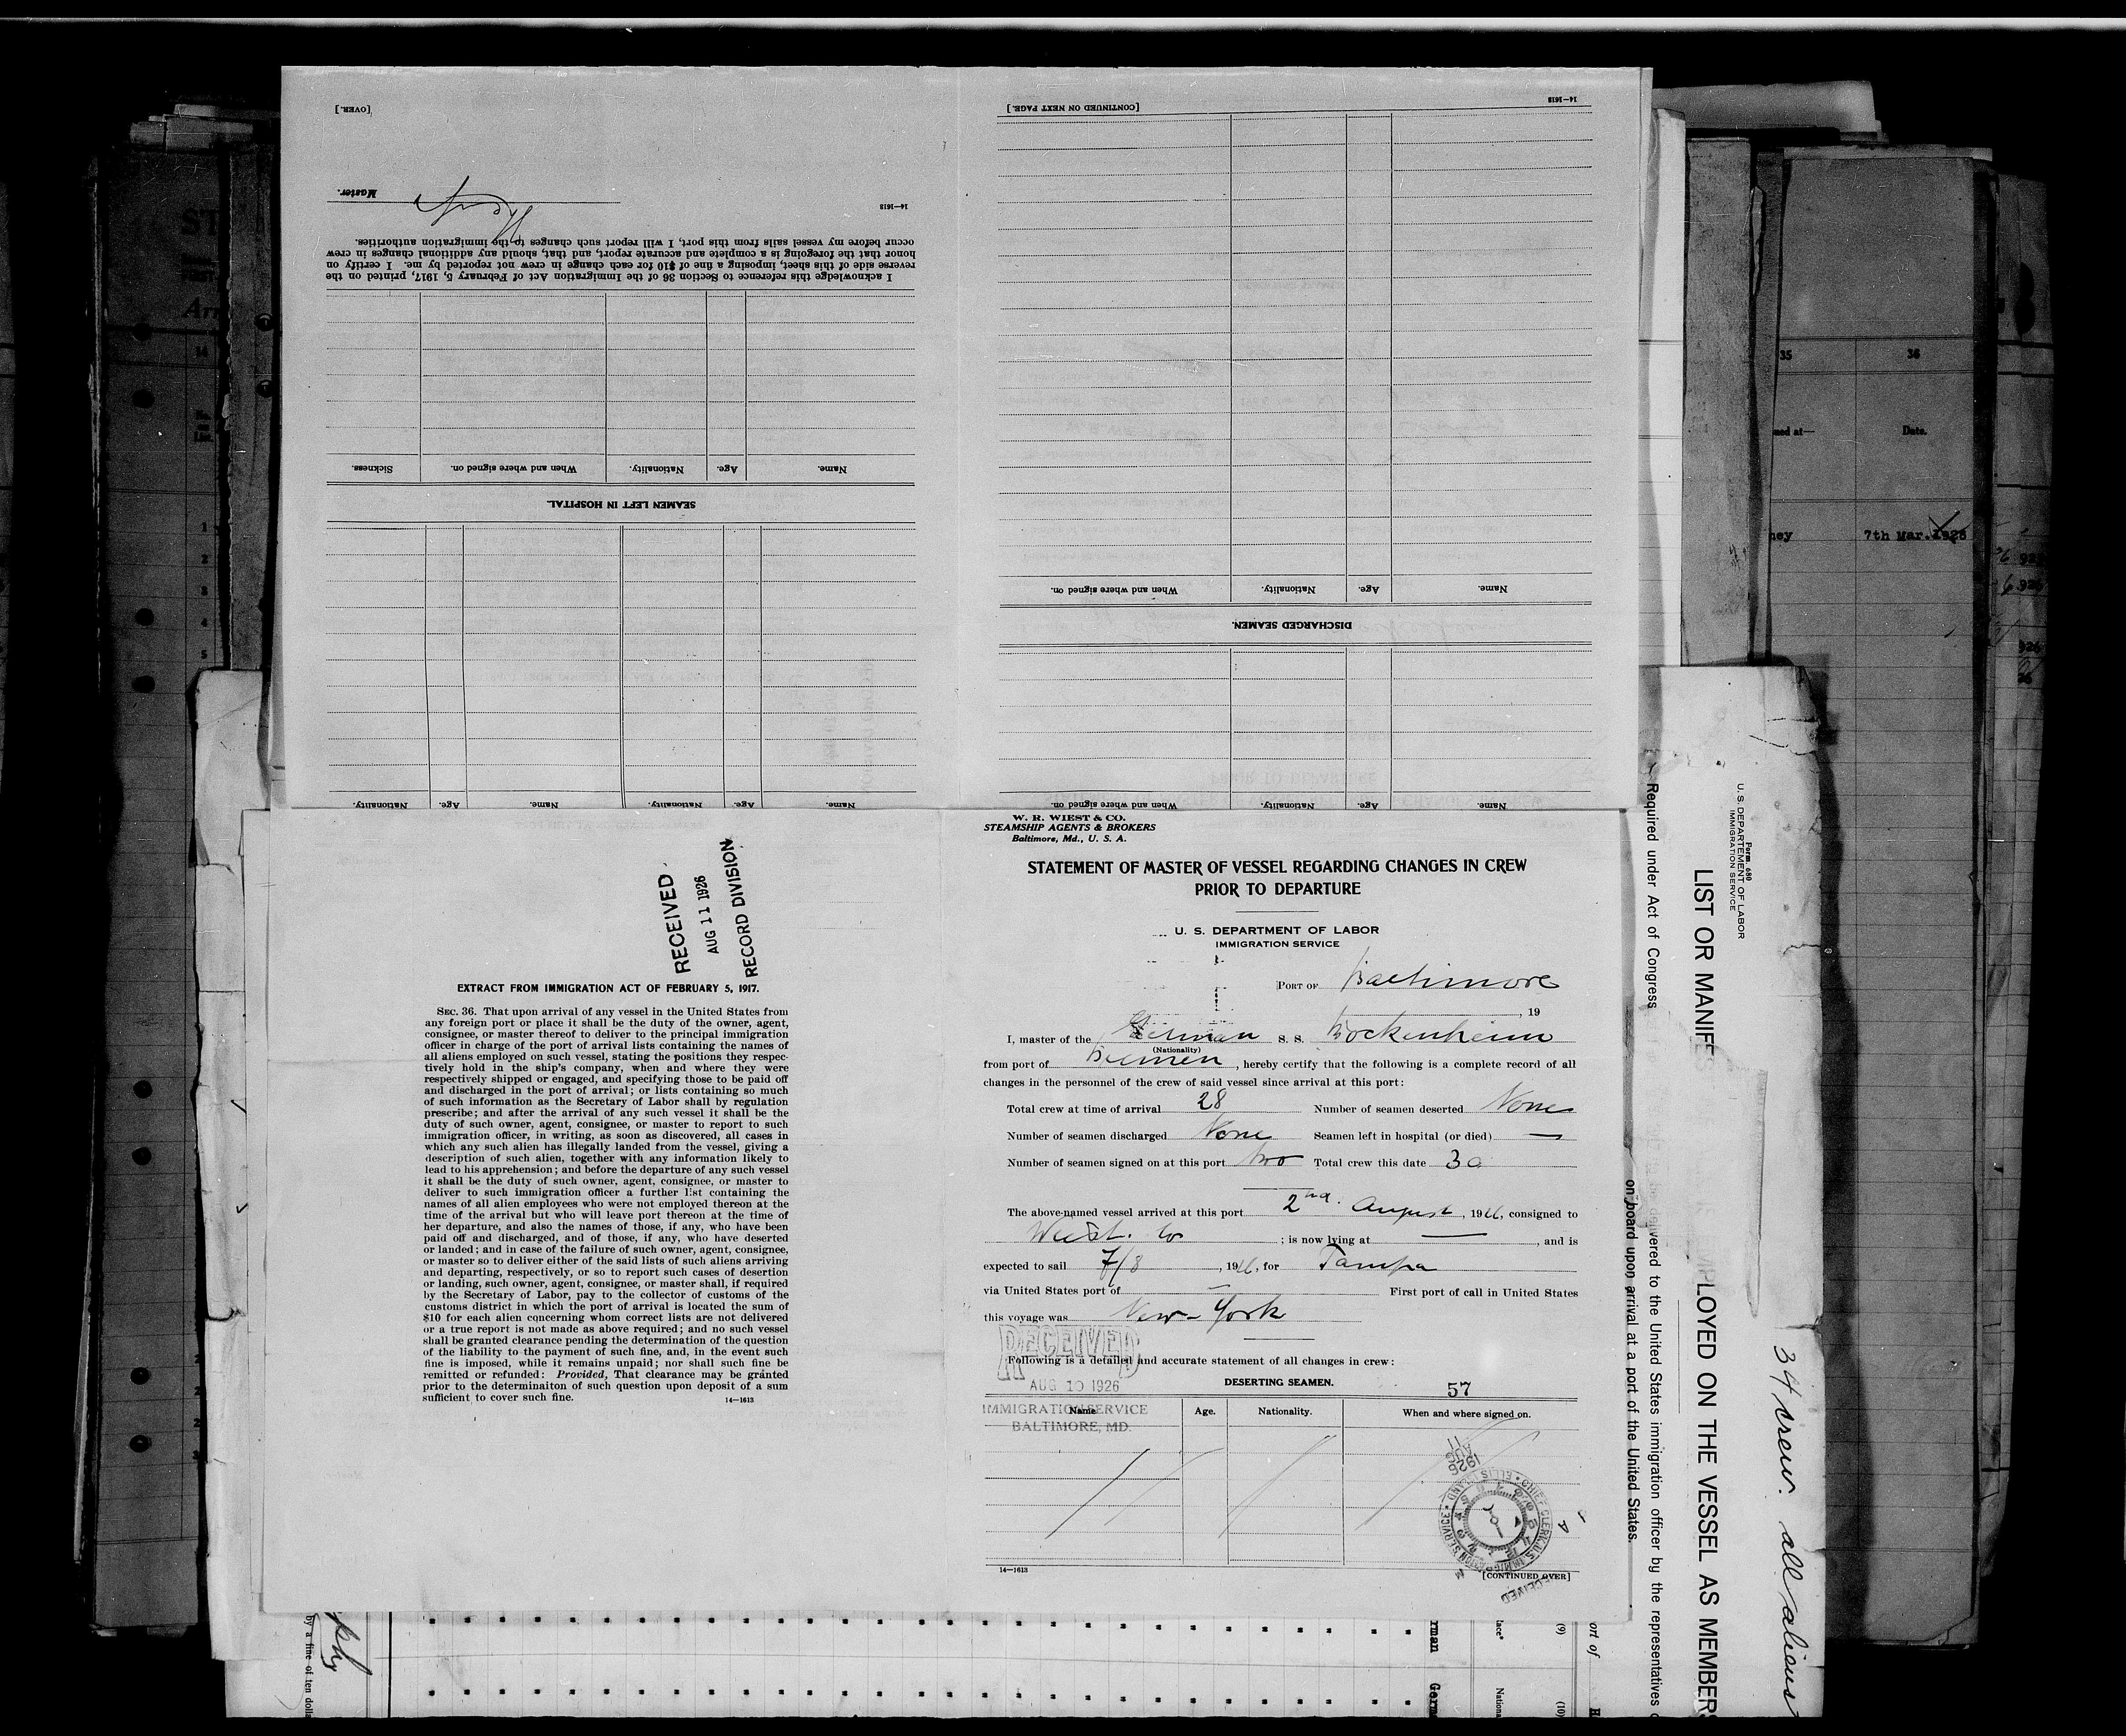 [OVER.]
Master.
14—1618
I acknowledge this reference to Section 36 of the Immigration Act of February 5, 1917, printed on the
reverse side of this sheet, imposing a fine of $10 for each change in crew not reported by me. I certify on
honor that the foregoing is a complete and accurate report, and that, should any additional changes in crew
occur before my vessel sails from this port, I will report such changes to the immigration authorities.
Name. Age. Nationality. When and where signed on. Sickness.
SEAMEN LEFT IN HOSPITAL.
Name. Age. Nationality. Name. Age. Nationality.
14—1613
[CONTINUED ON NEXT PAGE.]
Name. Age. Nationality. When and where signed on.
DISCHARGED SEAMEN.
Name. Age. Nationality. When and where signed on.
RECEIVED
AUG 11 1926
RECORD DIVISION
EXTRACT FROM IMMIGRATION ACT OF FEBRUARY 5, 1917.
SEC. 36. That upon arrival of any vessel in the United States from
any foreign port or place it shall be the duty of the owner, agent,
consignee, or master thereof to deliver to the principal immigration
officer in charge of the port of arrival lists containing the names of
all aliens employed on such vessel, stating the positions they respec-
tively hold in the ship's company, when and where they were
respectively shipped or engaged, and specifying those to be paid off
and discharged in the port of arrival; or lists containing so much
of such information as the Secretary of Labor shall by regulation
prescribe; and after the arrival of any such vessel it shall be the
duty of such owner, agent, consignee, or master to report to such
immigration officer, in writing, as soon as discovered, all cases in
which any such alien has illegally landed from the vessel, giving a
description of such alien, together with any information likely to
lead to his apprehension; and before the departure of any such vessel
it shall be the duty of such owner, agent, consignee, or master to
deliver to such immigration officer a further list containing the
names of all alien employees who were not employed thereon at the
time of the arrival but who will leave port thereon at the time of
her departure, and also the names of those, if any, who have been
paid off and discharged, and of those, if any, who have deserted
or landed; and in case of the failure of such owner, agent, consignee,
or master so to deliver either of the said lists of such aliens arriving
and departing, respectively, or so to report such cases of desertion
or landing, such owner, agent, consignee, or master shall, if required
by the Secretary of Labor, pay to the collector of customs of the
customs district in which the port of arrival is located the sum of
$10 for each alien concerning whom correct lists are not delivered
or a true report is not made as above required; and no such vessel
shall be granted clearance pending the determination of the question
of the liability to the payment of such fine, and, in the event such
fine is imposed, while it remains unpaid; nor shall such fine be
remitted or refunded: Provided, That clearance may be granted
prior to the determinaiton of such question upon deposit of a sum
sufficient to cover such fine.
14—1613
W. R. WIEST & CO.
STEAMSHIP AGENTS & BROKERS
Baltimore, Md., U. S. A.
STATEMENT OF MASTER OF VESSEL REGARDING CHANGES IN CREW
PRIOR TO DEPARTURE
U. S. DEPARTMENT OF LABOR
IMMIGRATION SERVICE
PORT OF Baltimore
, 19
I, master of the German S. S. Bockenheim
(Nationality)
from port of Bremen, hereby certify that the following is a complete record of all
changes in the personnel of the crew of said vessel since arrival at this port:
Total crew at time of arrival 28 Number of seamen deserted None
Number of seamen discharged None Seamen left in hospital (or died) —
Number of seamen signed on at this port two Total crew this date 30
The above-named vessel arrived at this port 2nd. August, 1926, consigned to
Wiest. Co ; is now lying at —, and is
expected to sail 7/8, 1926, for Tampa
via United States port of — First port of call in United States
this voyage was New-York
RECEIVED
Following is a detailed and accurate statement of all changes in crew:
AUG 10 1926
DESERTING SEAMEN. 57
IMMIGRATION SERVICE
BALTIMORE, MD.
Name. Age. Nationality. When and where signed on.
AUG 11
1926
CHIEF CLERK U.S. IMMIGRATION SERVICE • ELLIS ISLAND •
RECEIVED
14—1613
[CONTINUED OVER]
35 36
Date.
7th Mar. 1926
Form 680
U. S. DEPARTEMENT OF LABOR
IMMIGRATION SERVICE
LIST OR MANIFE
PLOYED ON THE VESSEL AS MEMBERS
Required under Act of Congress
delivered to the United States immigration officer by the representatives
on board upon arrival at a port of the United States.
34 crew. all aliens
by a fine of ten dolla